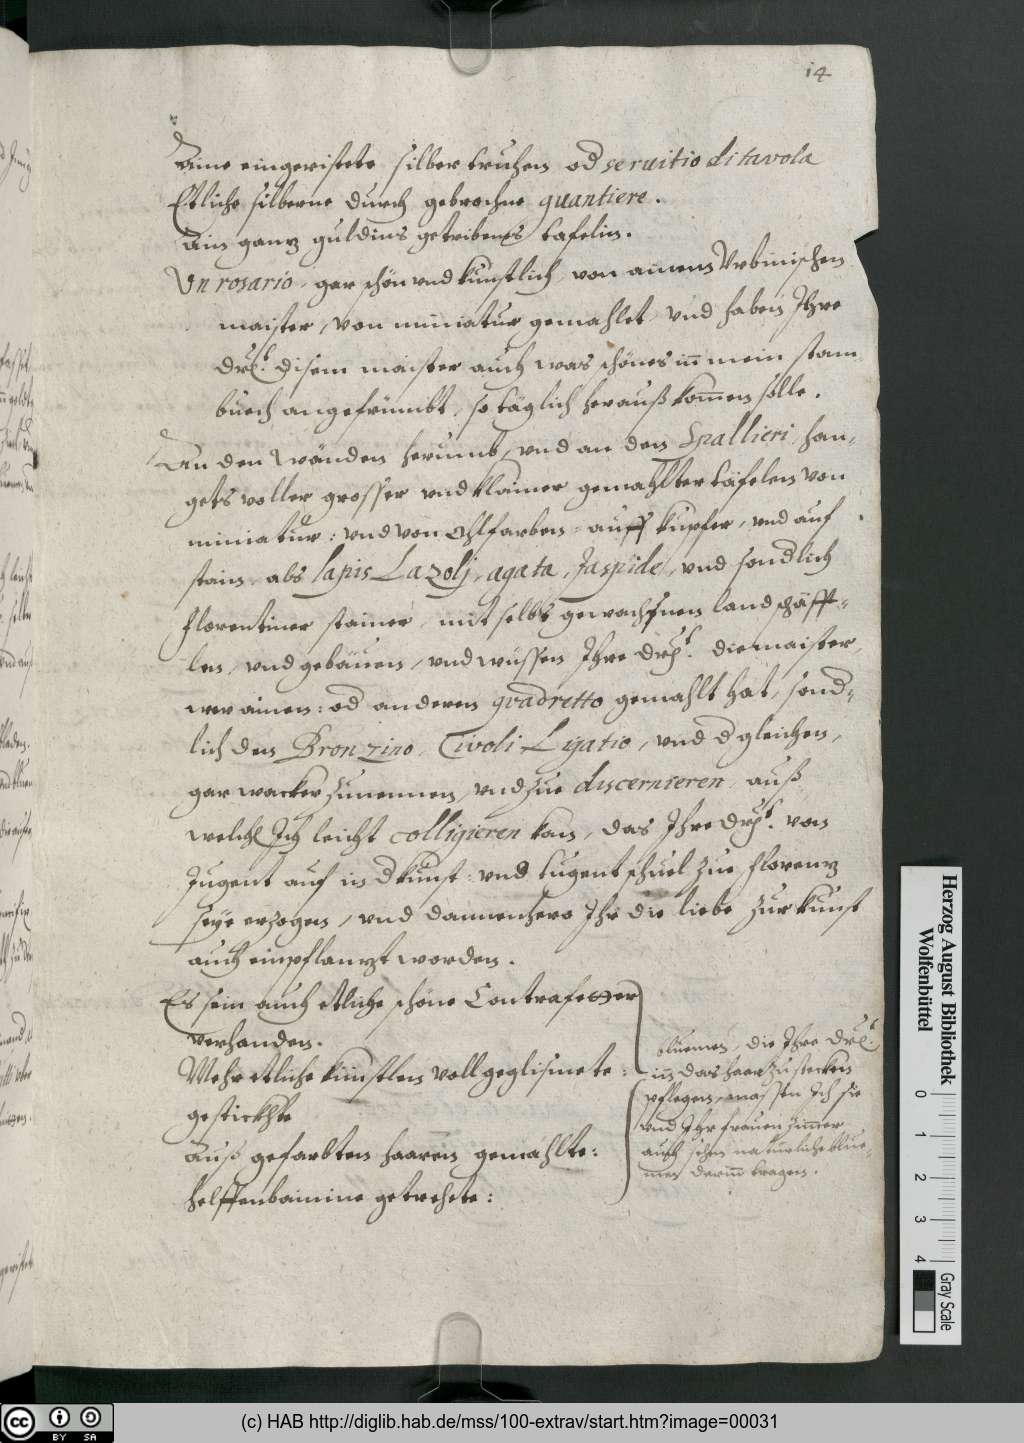 14
Aine eingerichtete silber truhen od servitio di tavola
Etliche silberne durch gebrochne quantiere.
Ain gantz guldins getribens tafelin.
Un rosario, gar schön und kunstlich von ainem Urbinischen
maister, von miniatur gemahlet, und haben Ihre
Drl. disem maister auch was schönes in mein stam
buech angefrümbt, so täglich herauß kommen solle.
An den wänden herumb, und an den Spallieri, han-
gets voller grosser und klainer gemahlter täfelen von
miniatur: und von öhlfarben auff kupfer, und auf
stain, als lapis Lazolj, agata, Jaspide, und sondlich
florentiner stainer, mit selbs gewachsnen landschäfft-
len, und gebäuen, und wüssen Ihre Drl. die maister,
wer ainen: od anderen quadretto gemahlt hat, sond-
lich den Bronzino, Tivoli Ligatio, und dgleichen,
gar wacker zunennen, und zue discernieren, auß
welchem Ich leicht colligieren kan, das Ihre Drl. von
Jugent auf in d kunst und tugent schuel zue florentz
seye erzogen, und dannenhero Ihr die liebe zur kunst
auch einpflantzt worden.
Es sein auch etliche schöne Contrafetter
verhanden.
Mehr etliche künstlen voll geglismete:
gestickhte
auß gefarbten haaren gemahlte:
helffenbainine getrehete:
bluemen, die Ihre Drl.
in das haar zustecken
pflegen, massen Ich sie
und Ihr frauen zimmer
auch schon naturliche blue-
men darin tragen.
Herzog August Bibliothek
Wolfenbüttel
0 1 2 3 4
Gray Scale
cc BY SA
(c) HAB http://diglib.hab.de/mss/100-extrav/start.htm?image=00031